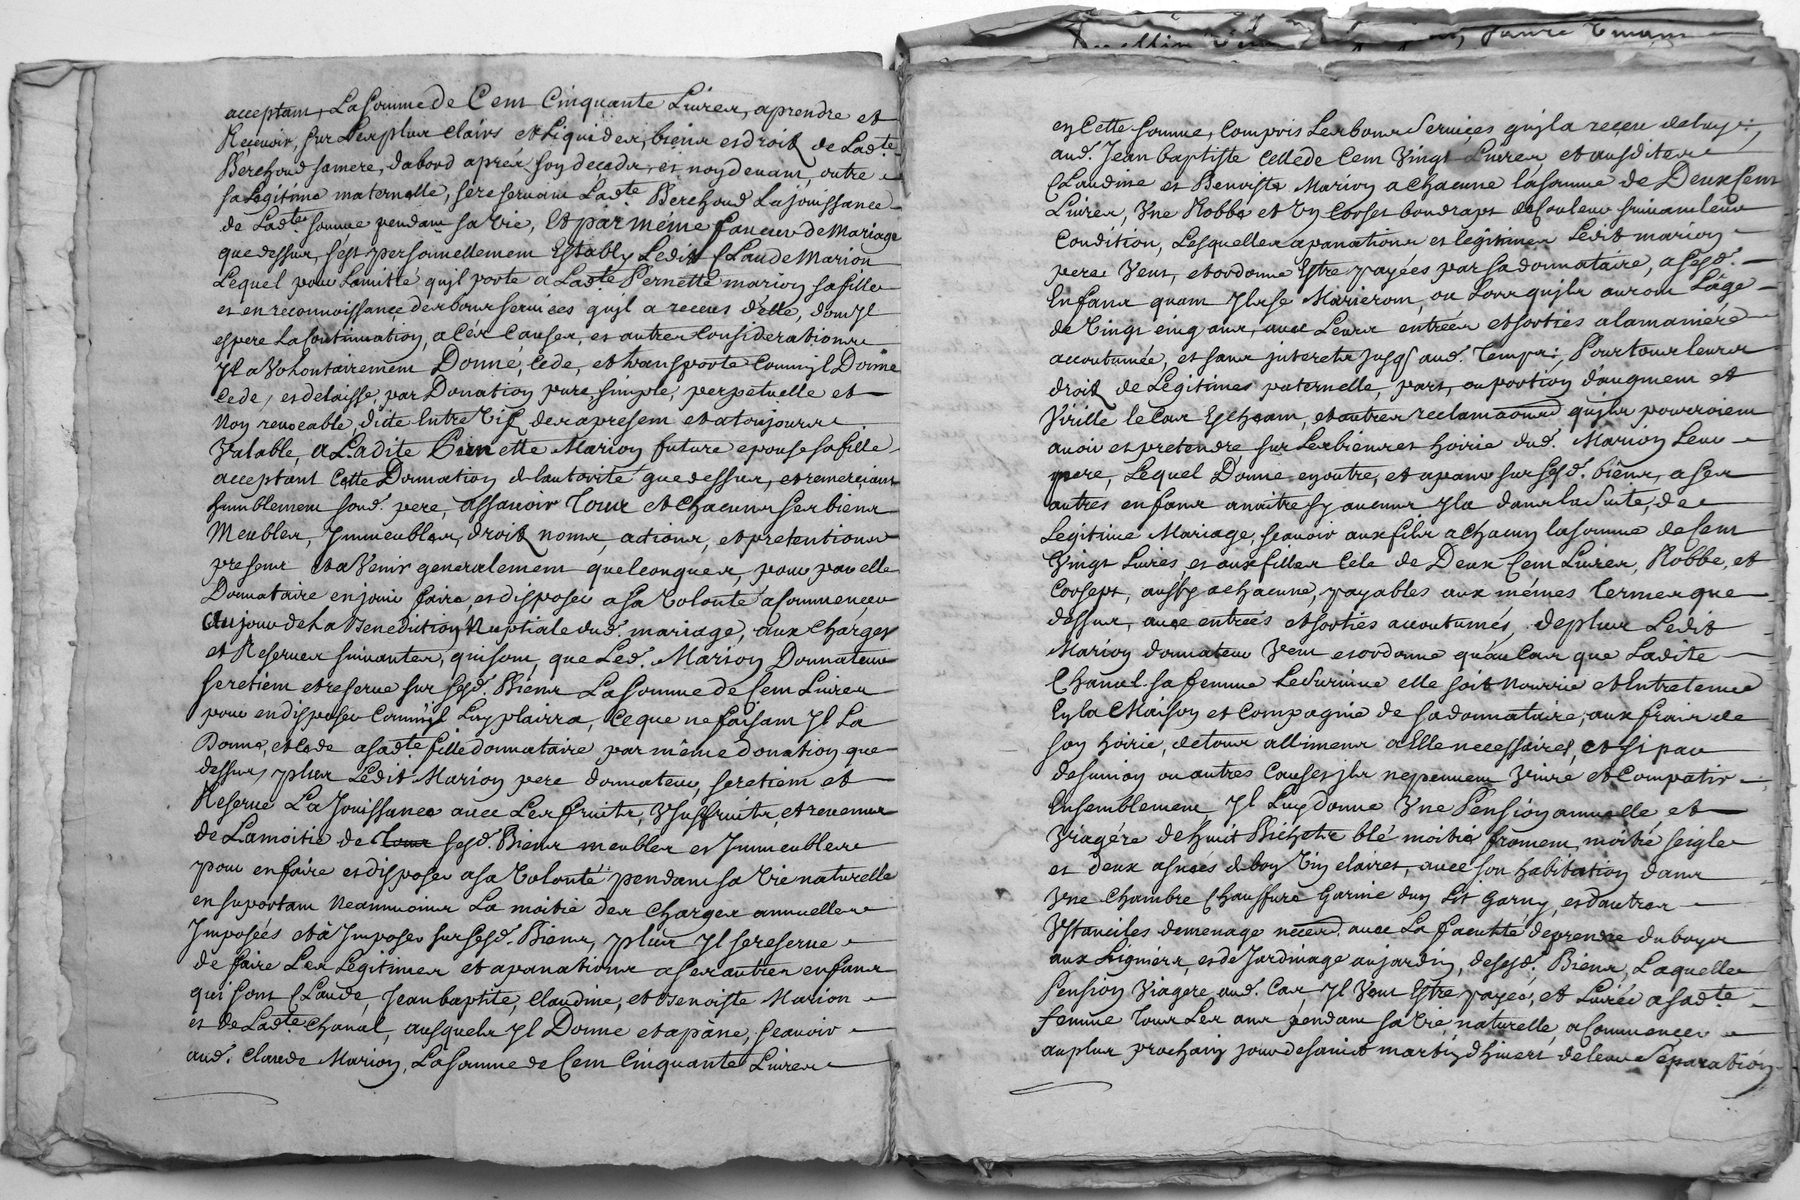 acceptant, La somme de Cent Cinquante Livres, aprendre et
Recevoir, sur Les plus clairs et Liquides, biens et droit de Ladte
Berchoud samere, dabord aprés son decéds, et noy devant, outre
sa Legitime maternelle, se reservant Ladte Berchoud La jouissance
de Ladte somme pendant sa vie, Et par méme faveur de Mariage
que dessus, s'est personnellement Establÿ Ledit Claude Marion
Lequel pour Lamitié quyl porte a Ladte Pernette marion sa fille
et en reconnoissance des bons services quyl a receus d'elle, dont yl
espere La Continuation, a Cés Causes, et autres Considerations
yl a Volontairement Donné, Cede, et transporte Comm'yl Donne
Cede, et delaisse, par Donation pure, simple, perpetuelle et
Non revocable, dite Entre vifs des apresent et a toujours
Valable, a Ladite Pernette Marion future epouse sa fille
acceptant Cette Donnation de L'autorité que dessus, et remerciant
humblement sond. pere, assavoir Tous et chacuns ses biens
Meubles, Immeubles, droit noms, actions, et pretentions
presens et a Venir generalement quelconques, pour par elle
Donnataire en jouir faire, et disposer a sa Volonté a Commencer
Au jour de La Benediction Nuptiale dud. mariage, aux charges
et Reserves suivantes, qui sont, que Led. Marion Donnateur
se retient et reserve sur sesd. Biens La somme de Cent Livres
pour en disposer Comm'yl Luy plairra, Ce que ne faisant yl La
Donne, et Cede a sadte fille donnataire par même donation que
dessus, plus Ledit Marion pere donnateur, se retient et
Reserve La Jouissance avec Les fruits, Usuffruits, et revenus
de La moitié de sesd. Biens meubles et Immeubles
pour en faire et disposer a sa Volonté pendant sa vie naturelle
en suportant Neanmoins La moitié des charges annuelles
Imposés et à Imposer sur sesd. Biens, plus yl se reserve
de faire Les Legitimes et apanations a ses autres enfans
qui sont Claude, Jean baptite, Claudine, et Benoiste Marion
et de Ladte Chanal, ausquels yl Donne et apâne, scavoir
aud. Claude Marion, La somme de Cent Cinquante Livres
en Cette somme, Compris Les bons services quyl a receu de luy,
aud. Jean baptiste Celle de Cent Vingt Livres, et ausdites
Claudine et Benoiste Marion a chacune la somme de Deux Cent
Livres, Une Robbe et un Corset bon drapt de Couleur suivant leur
Condition, Lesquelles apanations et légitimes Ledit marion
pere Veut, et ordonne Estre payées par sa donnataire, a sesd.
Enfans quant yls se Marieront, ou Lors quyls auront L'age
de Vingt cinq ans, avec Leurs entrées et sorties a la maniére
accoutumée, et sans interets jusqs aud. Temps, Pour tous leurs
droit de Legitimes paternelle, part, ou portion d'augment et
Virille le Cas Echeant, et autres reclamaõns quyls pourroient
avoir et pretendre sur Les biens et hoirie dud. Marion Leur
pere, Lequel Donne en outre, et apane sur sesd. biens, a ses
autres enfans a naitre sy aucuns yl a dans la suite, de
Legitime Mariage, scavoir aux fils a chacun la somme de Cent
Vingt Livres et aux filles Cele de Deux Cent Livres, Robbe, et
Corsept, aussy a chacune, payables aux mémes termes que
dessus, avec entreés et sorties accoutumés, de plus Ledit
Marion donnateur Veut et ordonne qu'au Cas que Ladite
Chanal sa femme Le Survive elle soit Nourrie et Entretenue
En la Maison et Compagnie de sa donnataire, aux frais de
son hoirie, de tous allimens a Elle necessaires, et si par
desunion ou autres Causes yls ne peuvent Vivre et Compatir
Ensemblement yl Luy donne Une Pension annuelle et
Viagére de huit Bichets blé moitié froment, moitié seigle
et deux asnées de bon vin clairet, avec son habitation dans
Une Chambre Chauffure Garnie dun Lit Garny, et d'autres
Ustanciles de menage neces. avec La faculté de prendre du boys
aux Ligniers, et de Jardinage au jardin, de sesd. Biens, Laquelle
Pension Viagere aud. Cas, yl Veut Estre payeé, et Livrée a sadte
femme Tous Les ans pendant sa vie naturelle, a Commencer
au plus prochain jour de saint martin d'hivert de leur Séparation